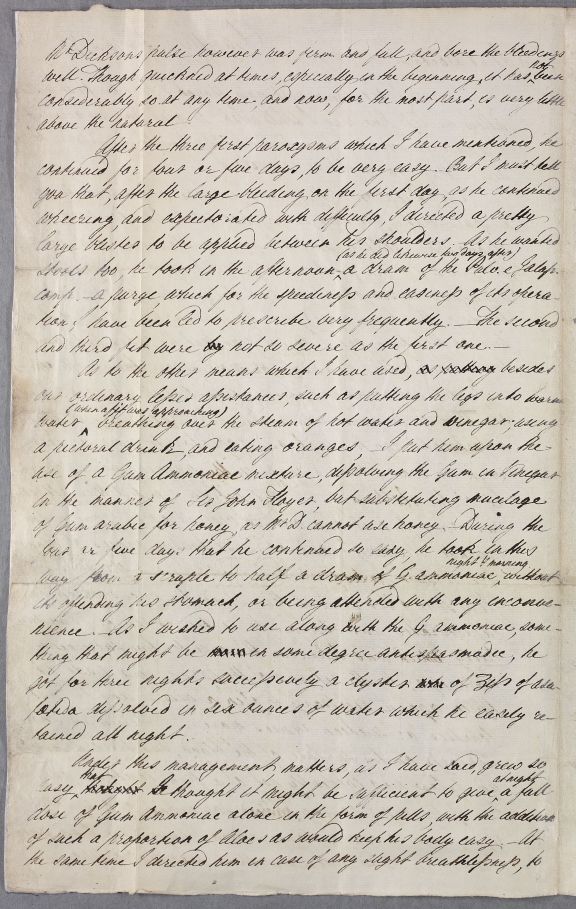 Mr. Dickson's pulse however was firm and full, and bore the bleedings
not
well. Though quickned at times, especially in the beginning, it has, been
considerably so at any time, and now, for the most part, is very little
above the natural.
After the three first paroxysms which I have mentioned, he
continued for four or five days, to be very easy. But I must tell
you that, after the large bleeding on the first day, as he continued
wheezing, and expectorated with difficulty, I directed a pretty
large blister to be applied between his shoulders. As he wanted
(as he did likewise two days after)
stools too, he took in the afternoon, a dram of the Pulv. e Jalap.
comp. - a purge which for the speediness and easiness of its opera-
tion, I have been led to prescribe very frequently. - The second
and third fit were not so severe as the first one. -
As to the other means which I have used, besides
our ordinary lesser assistances, such as putting the legs into warm
(when a fit was approaching)
water, breathing over the steam of hot water and vinegar, using
a pectoral drink, and eating oranges, - I put him upon the
use of a Gum Ammoniac mixture, dissolving the Gum in Vinegar
in the manner of Sir John Floyer, but substituting mucilage
of Gum arabic for honey, as Mr D. cannot use honey. - During the
four or five days that he continued so easy, he took in this
night & morning
way from a scruple to half a dram of G. ammoniac, without
its offending his stomach, or being attended with any inconve-
nience. - As I wished to use along with the G. ammoniac, some-
thing that might be in some degree antispasmodic, he
got for three nights successively a clyster of Zifs of asa
foetida dissolved in six ounces of water which he easily re-
tained all night.
Under this management, matters, as I have said, grew so
that at night
easy, I thought it might be sufficient to give, a full
dose of Gum Ammoniac alone in the form of pills, with the addition
of such a proportion of Aloes as would keep his body easy. - At
the same time I directed him in case of any slight breathlessness, to